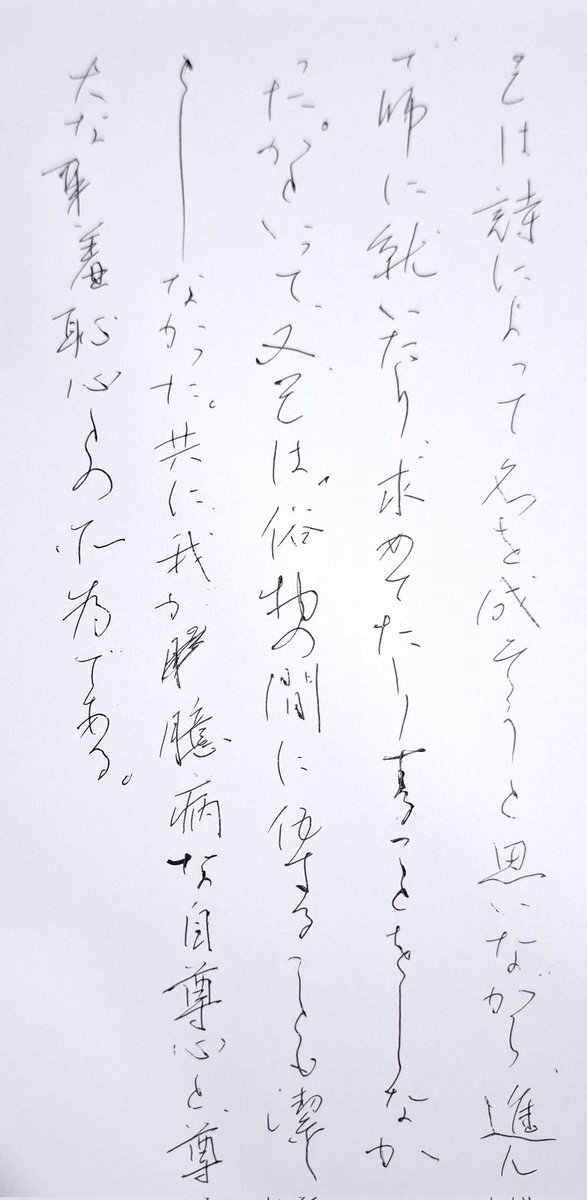 己は詩によって名を成そうと思いながら、進ん
で師に就いたり、求めてたりすることをしなか
った。かといって、又己は、俗物の間に伍することも潔し
としなかった。共に、我が臆病な自尊心と、尊
大な羞恥心との所為である。